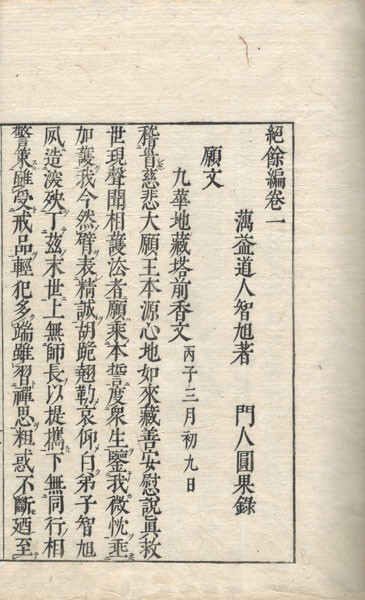 絕餘編卷一
蕅益道人智旭著 門人圓果錄
願文
九華地藏塔前香文 丙子三月初九日
稽首慈悲大願王本源心地如來藏善安慰說眞救
世現聲聞相護法者願乘本誓度衆生鑒我微忱垂
加護我今然臂表精誠胡跪翹勤哀仰白弟子智旭
夙造深殃丁茲末世上無師長以提攜下無同行相
警策雖受戒品輕犯多端雖習禪思粗惑不斷廼至